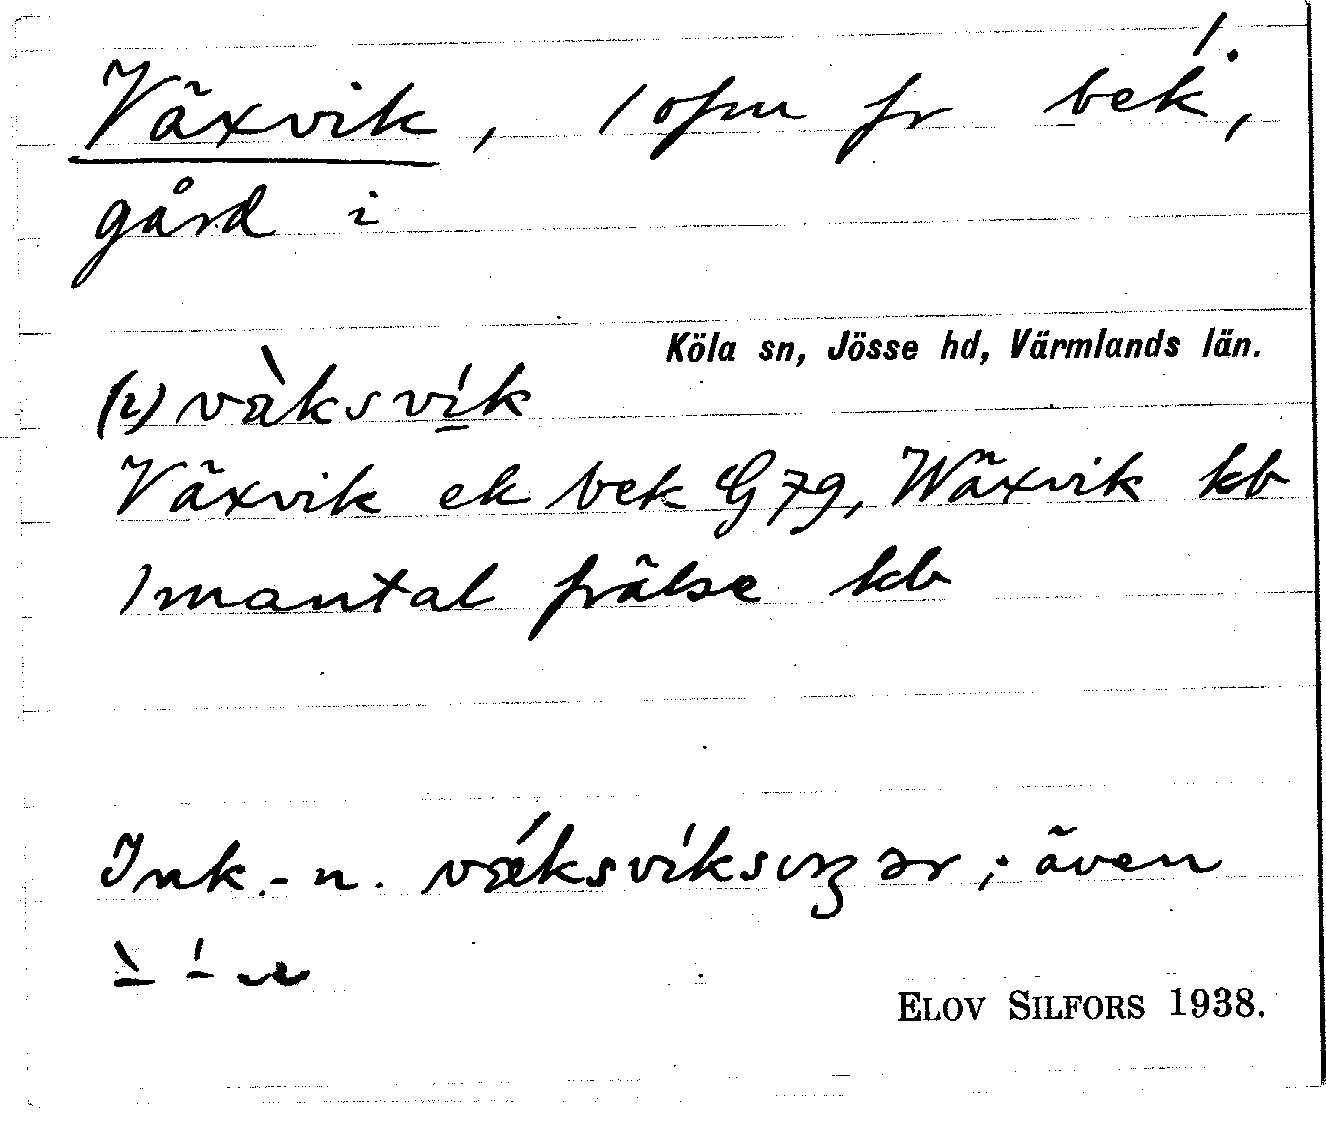 1.
Växvik, / ofru fr bek,
gård i
Köla sn, Jösse hd, Värmlands län.
(i) vàksvík
Växvik ek bek G 79, Wäxvik kb
1 mantal frälse kb
Ink.-n. vǽksvíksıŋər; även
ELOV SILFORS 1938.